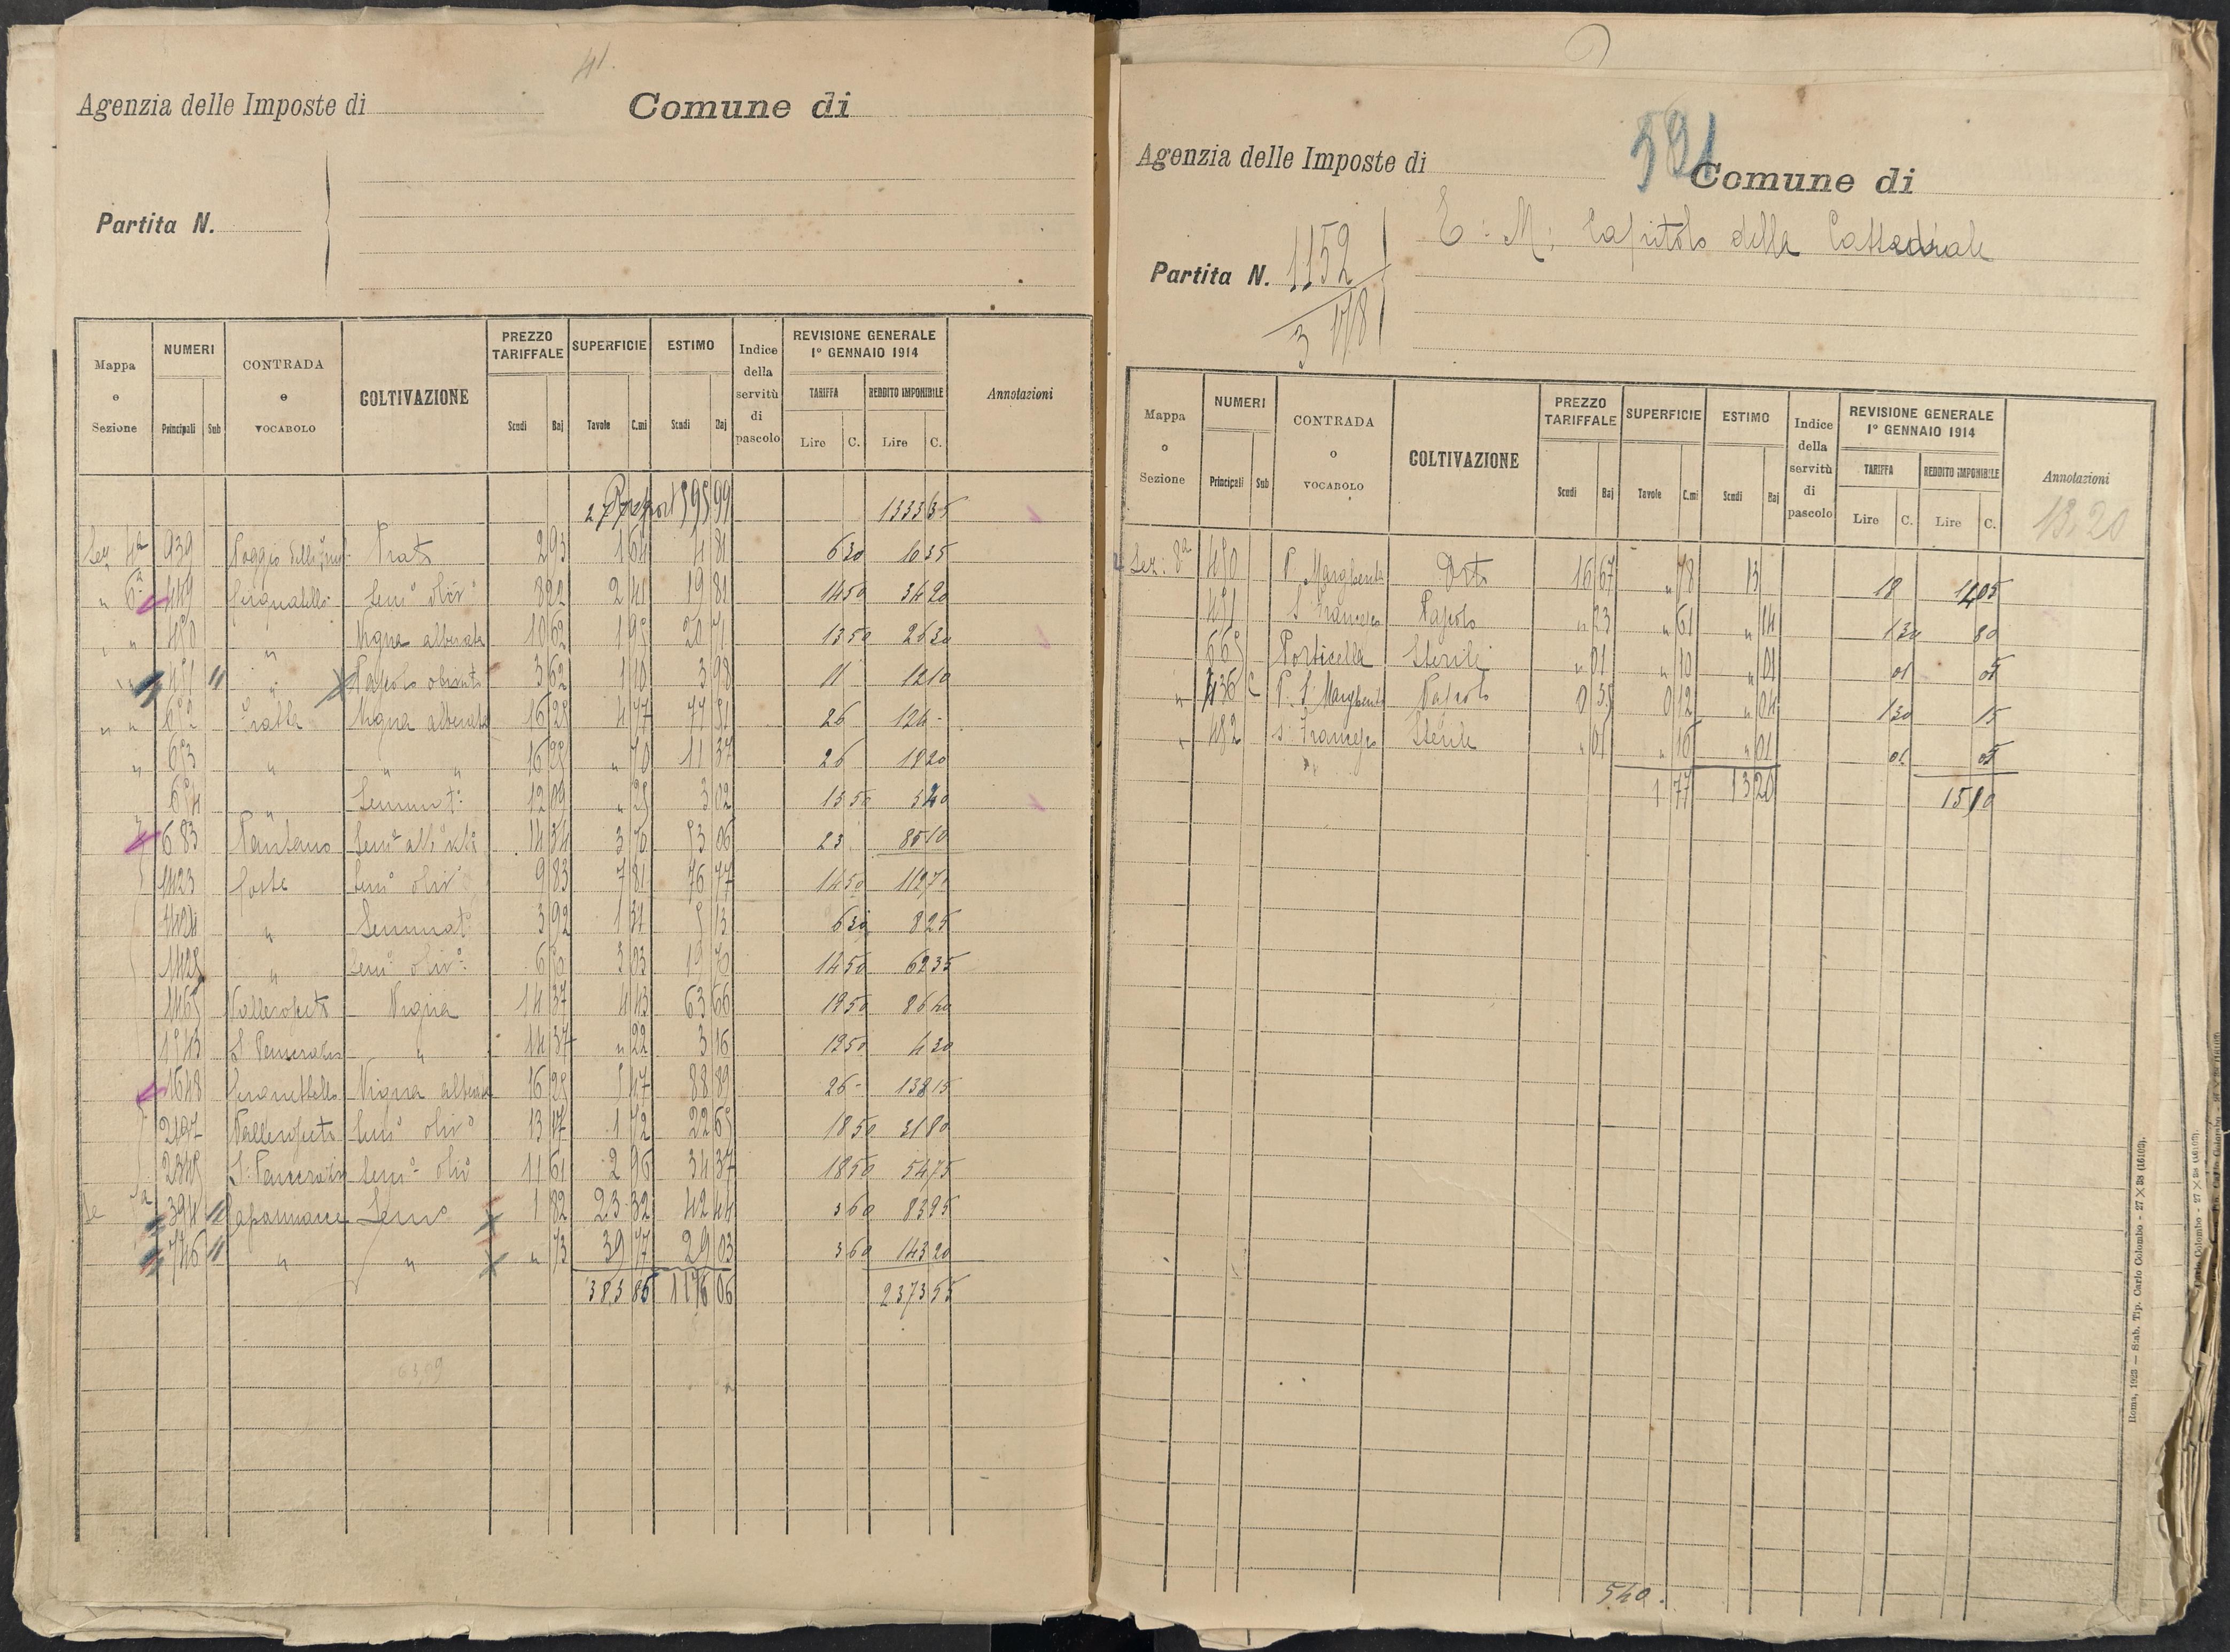 41.
Agenzia delle Imposte di Comune di
Partita N.
Mappa o Sezione NUMERI Principali Sub CONTRADA o VOCABOLO COLTIVAZIONE PREZZO TARIFFALE Scudi Baj SUPERFICIE Tavole C.mi ESTIMO Scudi Baj Indice della servitù di pascolo REVISIONE GENERALE 1° GENNAIO 1914 TARIFFA Lire C. REDDITO IMPONIBILE Lire C. Annotazioni
595 99 1333 35
Sez 4a 939 Poggio Prato 2 93 1 64 4 81 6 30 10 35
" 6a 449 Semo olivo 8 22 2 41 19 81 14 50 34 20
" " 450 " Vigna alberata 10 62 1 95 20 71 13 50 26 30
" " 451 " Pascolo olivato 3 62 1 10 3 98 11 12 10
" " 652 Vigna alberata 16 25 4 77 77 51 26 124 -
" 653 " " " 16 25 " 70 11 37 26 18 20
654 " Seminato 12 09 " 25 3 02 13 50 3 40
683 Pantano 14 34 3 70 53 06 23 85 10
1423 Coste Semo olivo 9 83 7 81 76 77 14 50
1424 " Seminato 3 92 1 31 5 13 6 30 8 25
1425 " Semo olivo 6 50 3 03 19 70 14 50
1465 Vigna 14 37 4 43 63 66 19 50 86 40
1543 S. Pancrazio " 14 37 " 22 3 16 19 50 4 30
1648 Vigna alberata 16 25 5 47 88 89 26 -
2197 Semo olivo 13 17 1 72 22 65 18 50 31 80
2345 S. Pancrazio Semo olivo 11 61 2 96 34 37 18 50 54 75
394 Capannacce Semo 1 82 23 32 42 44 3 60 83 95
746 " " " 73 39 77 29 03 3 60 143 20
383 85 1176 06 2373 55
6399
591
Agenzia delle Imposte di Comune di
E: M: Capitolo della Cattedrale
Partita N. 1152
3
Mappa o Sezione NUMERI Principali Sub CONTRADA o VOCABOLO COLTIVAZIONE PREZZO TARIFFALE Scudi Baj SUPERFICIE Tavole C.mi ESTIMO Scudi Baj Indice della servitù di pascolo REVISIONE GENERALE 1° GENNAIO 1914 TARIFFA Lire C. REDDITO IMPONIBILE Lire C. Annotazioni
13,20
Sez: 8a 450 P. Margherita Orto 16 67 " 78 13 18 14 05
451 S. Francesco Pascolo " 23 " 61 " 14 1 30 80
665 Porticella Sterile " 01 " 10 " 01 01 05
" 436 C P. S. Margherita Pascolo 0 35 0 12 " 04 1 30 15
" 482 S. Francesco Sterile " 01 " 16 " 01 01 05
1 77 13 20 15 10
540.
Roma, 1923 — Stab. Tip. Carlo Colombo - 27 X 38 (16103).